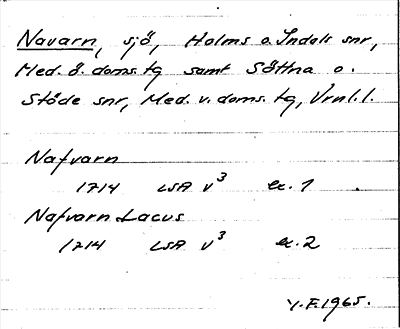 Navarn, sjö, Holms o. Indals snr,
Med. ö. doms. tg samt Sättna o.
Stöde snr, Med. v. doms. tg, Vrnl. l.
Nafvarn
1714 LSA V³ ex. 1
Nafvarn Lacus
1714 LSA V³ ex. 2
Y.F. 1965.